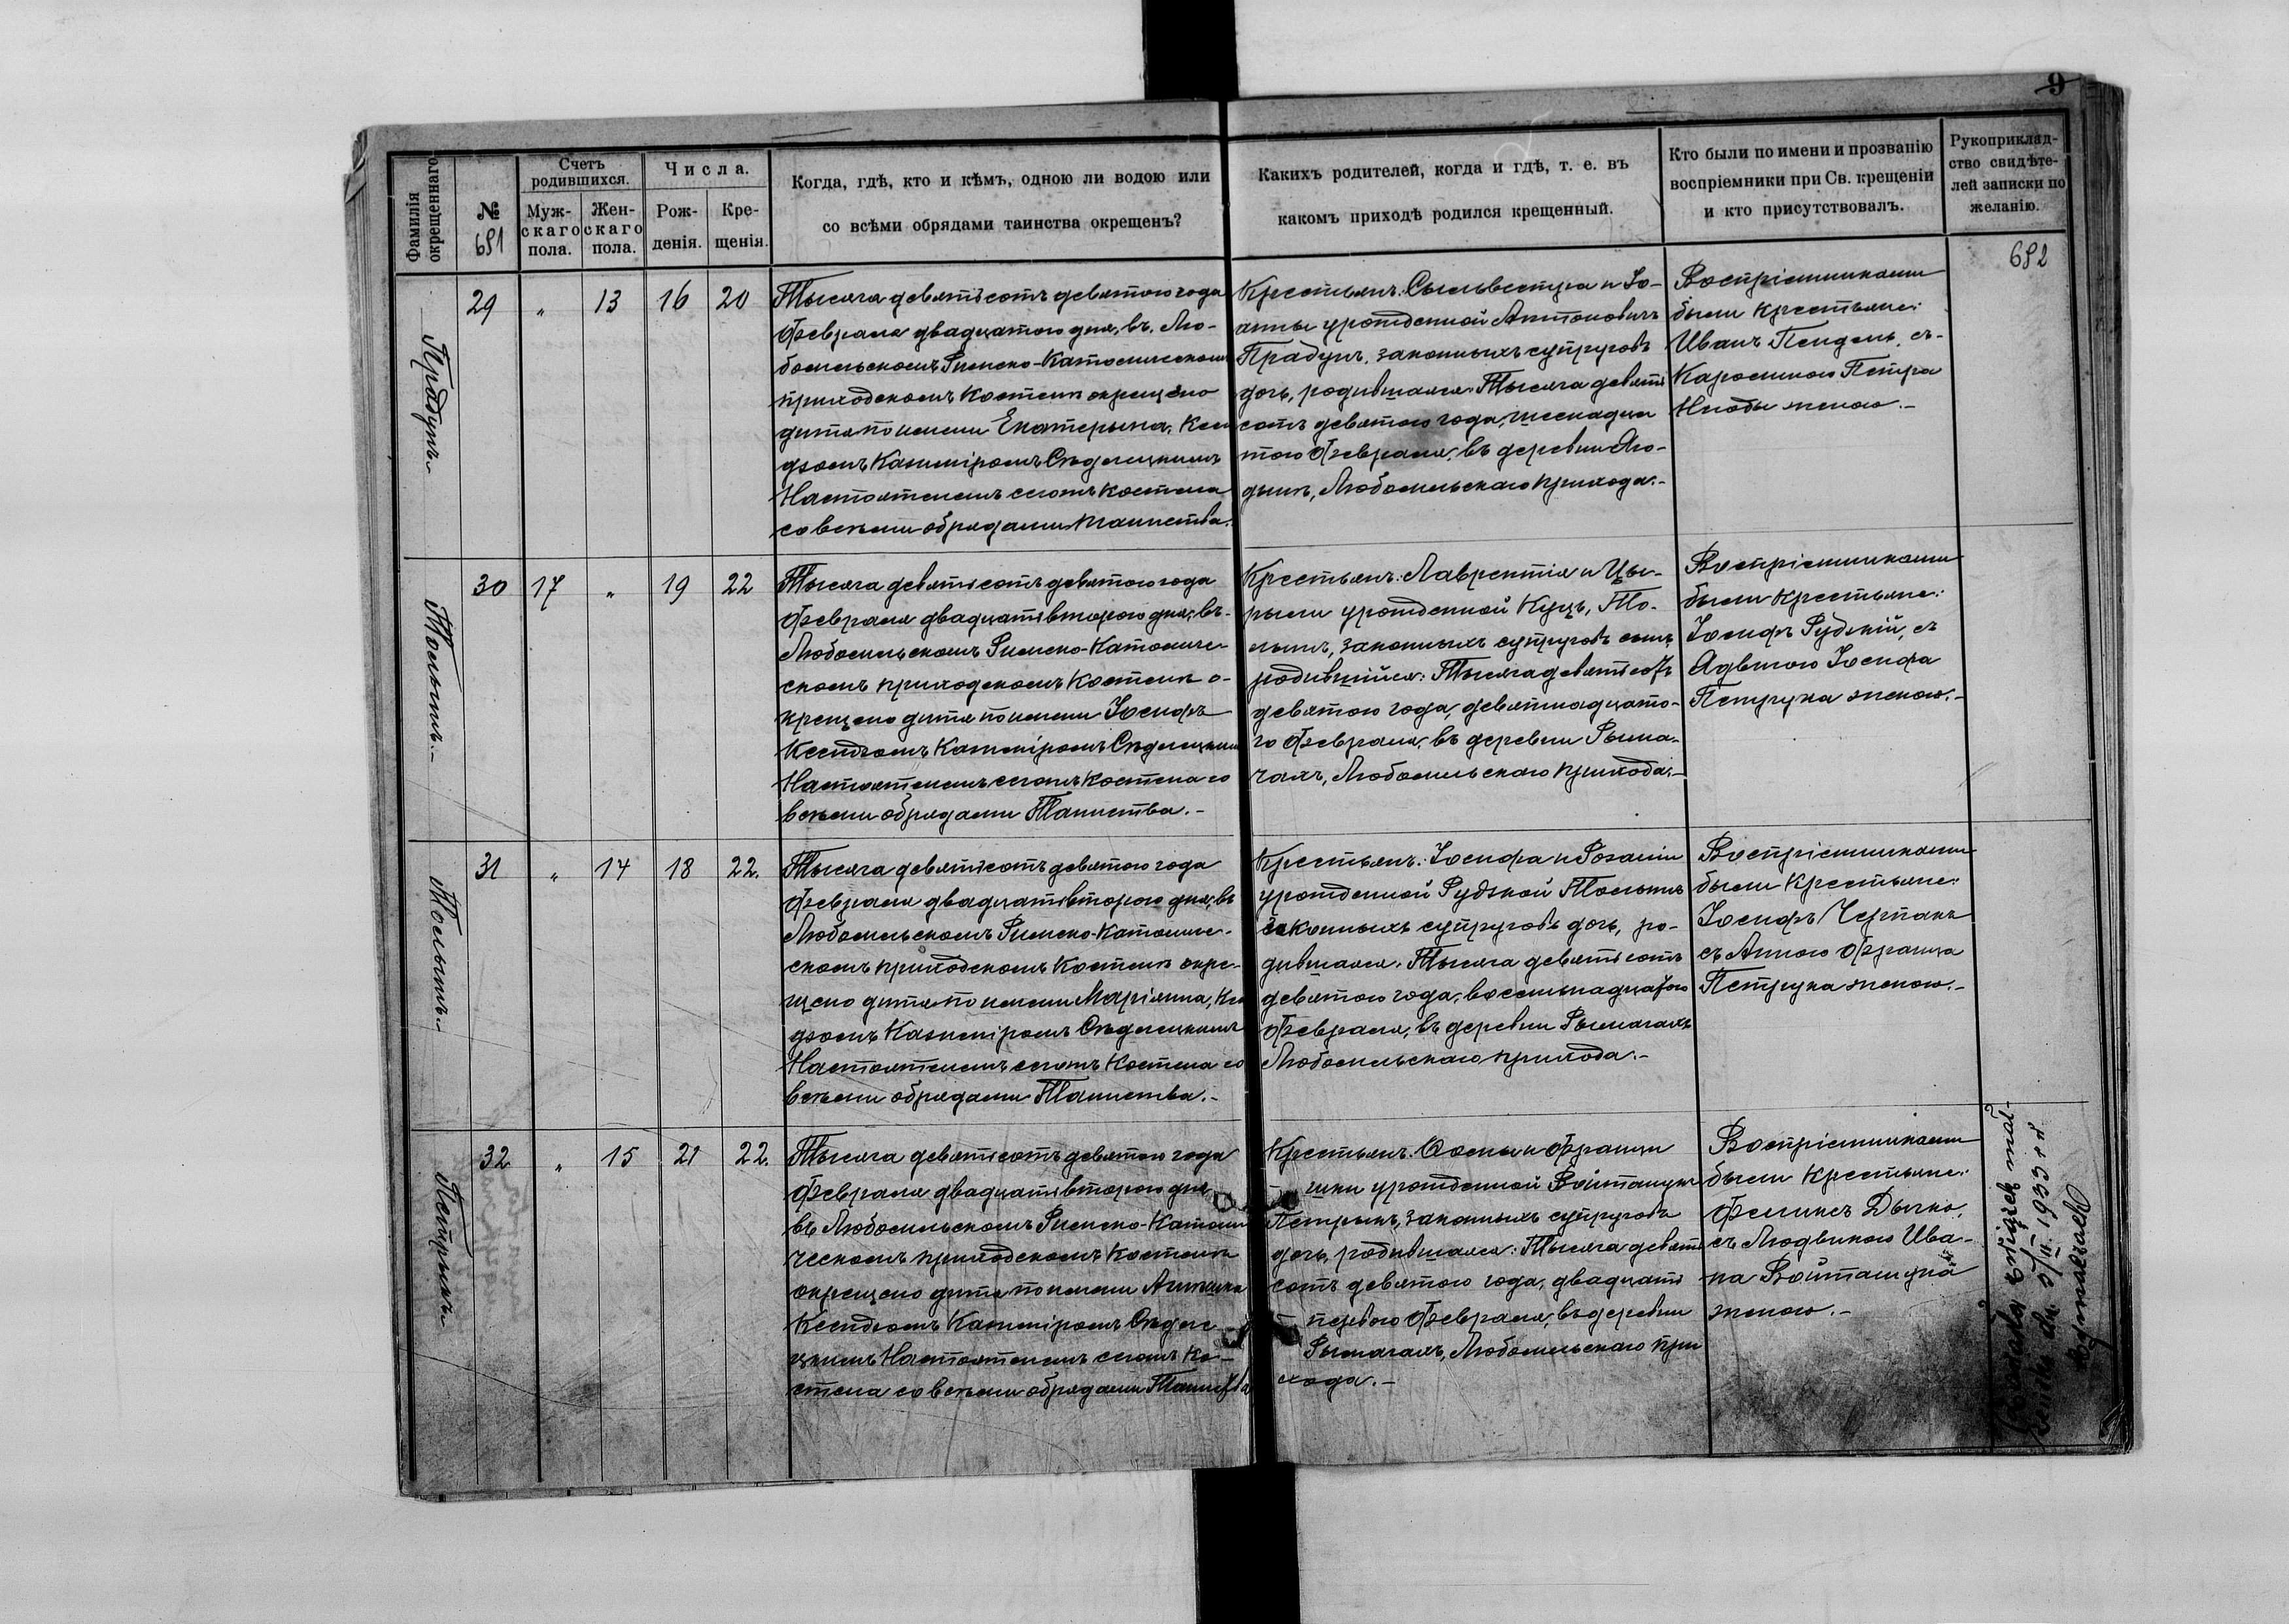 9
Фамилія окрещеннаго.
№
681
Счетъ родившихся.
Муж-скаго пола.
Жен-скаго пола.
Числа.
Рож-денія.
Кре-щенія.
Когда, гдѣ, кто и кѣмъ, одною ли водою или
со всѣми обрядами таинства окрещенъ?
Какихъ родителей, когда и гдѣ, т. е. въ
какомъ приходѣ родился крещенный.
Кто были по имени и прозванію
воспріемники при Св. крещеніи
и кто присутствовалъ.
Рукоприклад-
ство свидѣте-
лей записки по
желанію.
682
Прадунъ.
29 " 13 16 20
Тысяча девятьсотъ девятого года
Февраля двадцатого дня, въ Лю-
бомльскомъ Римско-Католическомъ
приходскомъ Костелѣ окрещено
дитя по имени Екатерына, Ксен
дзомъ Казиміромъ
Настоятелемъ сегожъ Костела
со всѣми обрядами таинства.
Крестьянъ: Сыльвестра и Іо-
анны урожденной Антоновичъ
Прадунъ, законныхъ супруговъ
дочь, родившаяся: Тысяча девять
сотъ девятого года, шеснадца
того Февраля, въ деревни Яго-
дынѣ, Любомльскаго прихода.-
Воспріемниками
были крестьяне:
Иванъ Пендель, съ-
Каролиною Петра
женою.-
30 17 " 19 22
Тысяча девятьсотъ девятого года
Февраля двадцать второго дня, въ-
Любомльскомъ Римско-Католиче-
скомъ приходскомъ Костелѣ о-
крещено дитя по имени Іосифъ
Ксендзомъ Казиміромъ
Настоятелемъ сегожъ Костела со
всѣми обрядами Таинства.-
Крестьянъ: Лаврентія и Цы-
рыли урожденной Куцъ,
законныхъ супруговъ сынъ,
родившійся: Тысяча девятьсотъ
девятого года, девятнадцато-
го Февраля, въ деревни Рыма-
чахъ, Любомльскаго прихода.-
Воспріемниками
были крестьяне:
Іосифъ Рудскій, съ
Іосифа
Петрука женою.-
31 " 14 18 22.
Тысяча девятьсотъ девятого года
Февраля двадцать второго дня, въ
Любомльскомъ Римско-Католиче-
скомъ приходскомъ Костелѣ окре-
щено дитя по имени Маріянна, Ксен
дзомъ Казиміромъ
Настоятелемъ сегожъ Костела со
всѣми обрядами Таинства.-
Крестьянъ: Іосифа и Розаліи
урожденной Рудской
законныхъ супруговъ дочь, ро-
дившаяся: Тысяча девятьсотъ
девятого года, восемнадцатого
Февраля, въ деревни Рымачахъ
Любомльскаго прихода.-
Воспріемниками
были Крестьяне:
Іосифъ Черпакъ
съ Анною Франца
Петрука женою.-
Петрукъ.
32 " 15 21 22.
Тысяча девятьсотъ девятого года
Февраля двадцать второго дня,
въ Любомльскомъ Римско-Католи
ческомъ приходскомъ Костелѣ
окрещено дитя по имени
Ксендзомъ Казиміромъ
Настоятелемъ сегожъ Ко-
стела со всѣми обрядами Таинства
Крестьянъ: и Францы
шки урожденной Войташукъ
Петрукъ, законныхъ супруговъ
дочь, родившаяся: Тысяча девять
сотъ девятого года, двадцать
первого Февраля, въ деревни
Рымачахъ, Любомльскаго при
хода.-
Воспріемниками
были Крестьяне:
Феликсъ Дычко,
съ Людвикою Ива-
на Войташука
женою.-
związek mał-
1933 r.